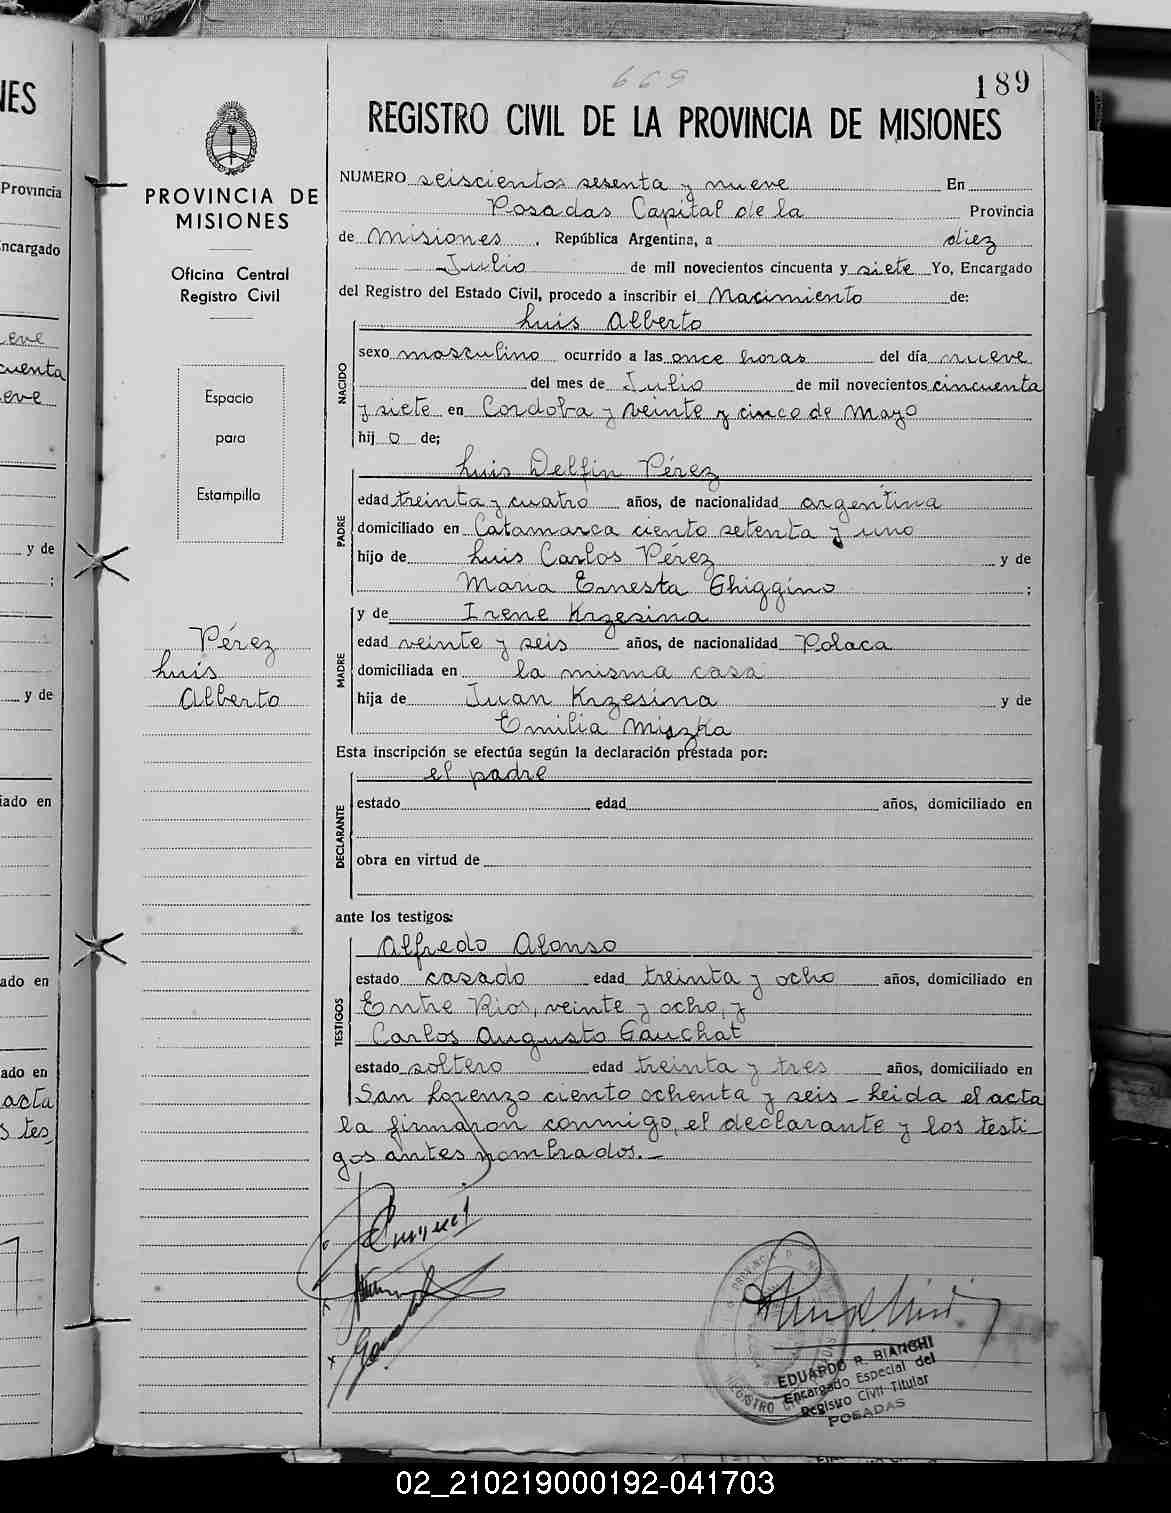 669
189
REGISTRO CIVIL DE LA PROVINCIA DE MISIONES
PROVINCIA DE
MISIONES
Oficina Central
Registro Civil
Espacio
para
Estampilla
Pérez
Luis
Alberto
NUMERO seiscientos sesenta y nueve En
Posadas Capital de la Provincia
de Misiones. República Argentina, a diez
Julio de mil novecientos cincuenta y siete Yo, Encargado
del Registro del Estado Civil, procedo a inscribir el Nacimiento de:
NACIDO
Luis Alberto
sexo masculino ocurrido a las once horas del día nueve
del mes de Julio de mil novecientos cincuenta
y siete en Cordoba y veinte y cinco de Mayo
hij o de;
PADRE
Luis Delfin Pérez
edad treinta y cuatro años, de nacionalidad argentina
domiciliado en Catamarca ciento setenta y uno
hijo de Luis Carlos Pérez y de
Maria Ernesta Ghiggino ;
y de Irene Krzesina
MADRE
edad veinte y seis años, de nacionalidad Polaca
domiciliada en la misma casa
hija de Juan Krzesina y de
Emilia Miszka
Esta inscripción se efectúa según la declaración prestada por:
DECLARANTE
el padre
estado edad años, domiciliado en
obra en virtud de
ante los testigos:
TESTIGOS
Alfredo Alonso
estado casado edad treinta y ocho años, domiciliado en
Entre Rios, veinte y ocho, y
Carlos Augusto Gauchat
estado soltero edad treinta y tres años, domiciliado en
San Lorenzo ciento ochenta y seis - Leida el acta
la firmaron conmigo, el declarante y los testi-
gos antes nombrados.-
EDUARDO R. BIANCHI
Encargado Especial del
Registro Civil Titular
POSADAS
NES
Provincia
ncargado
eve
cuenta
eve
y de
;
y de
iado en
ado en
ado en
acta
s tes
02_210219000192-041703